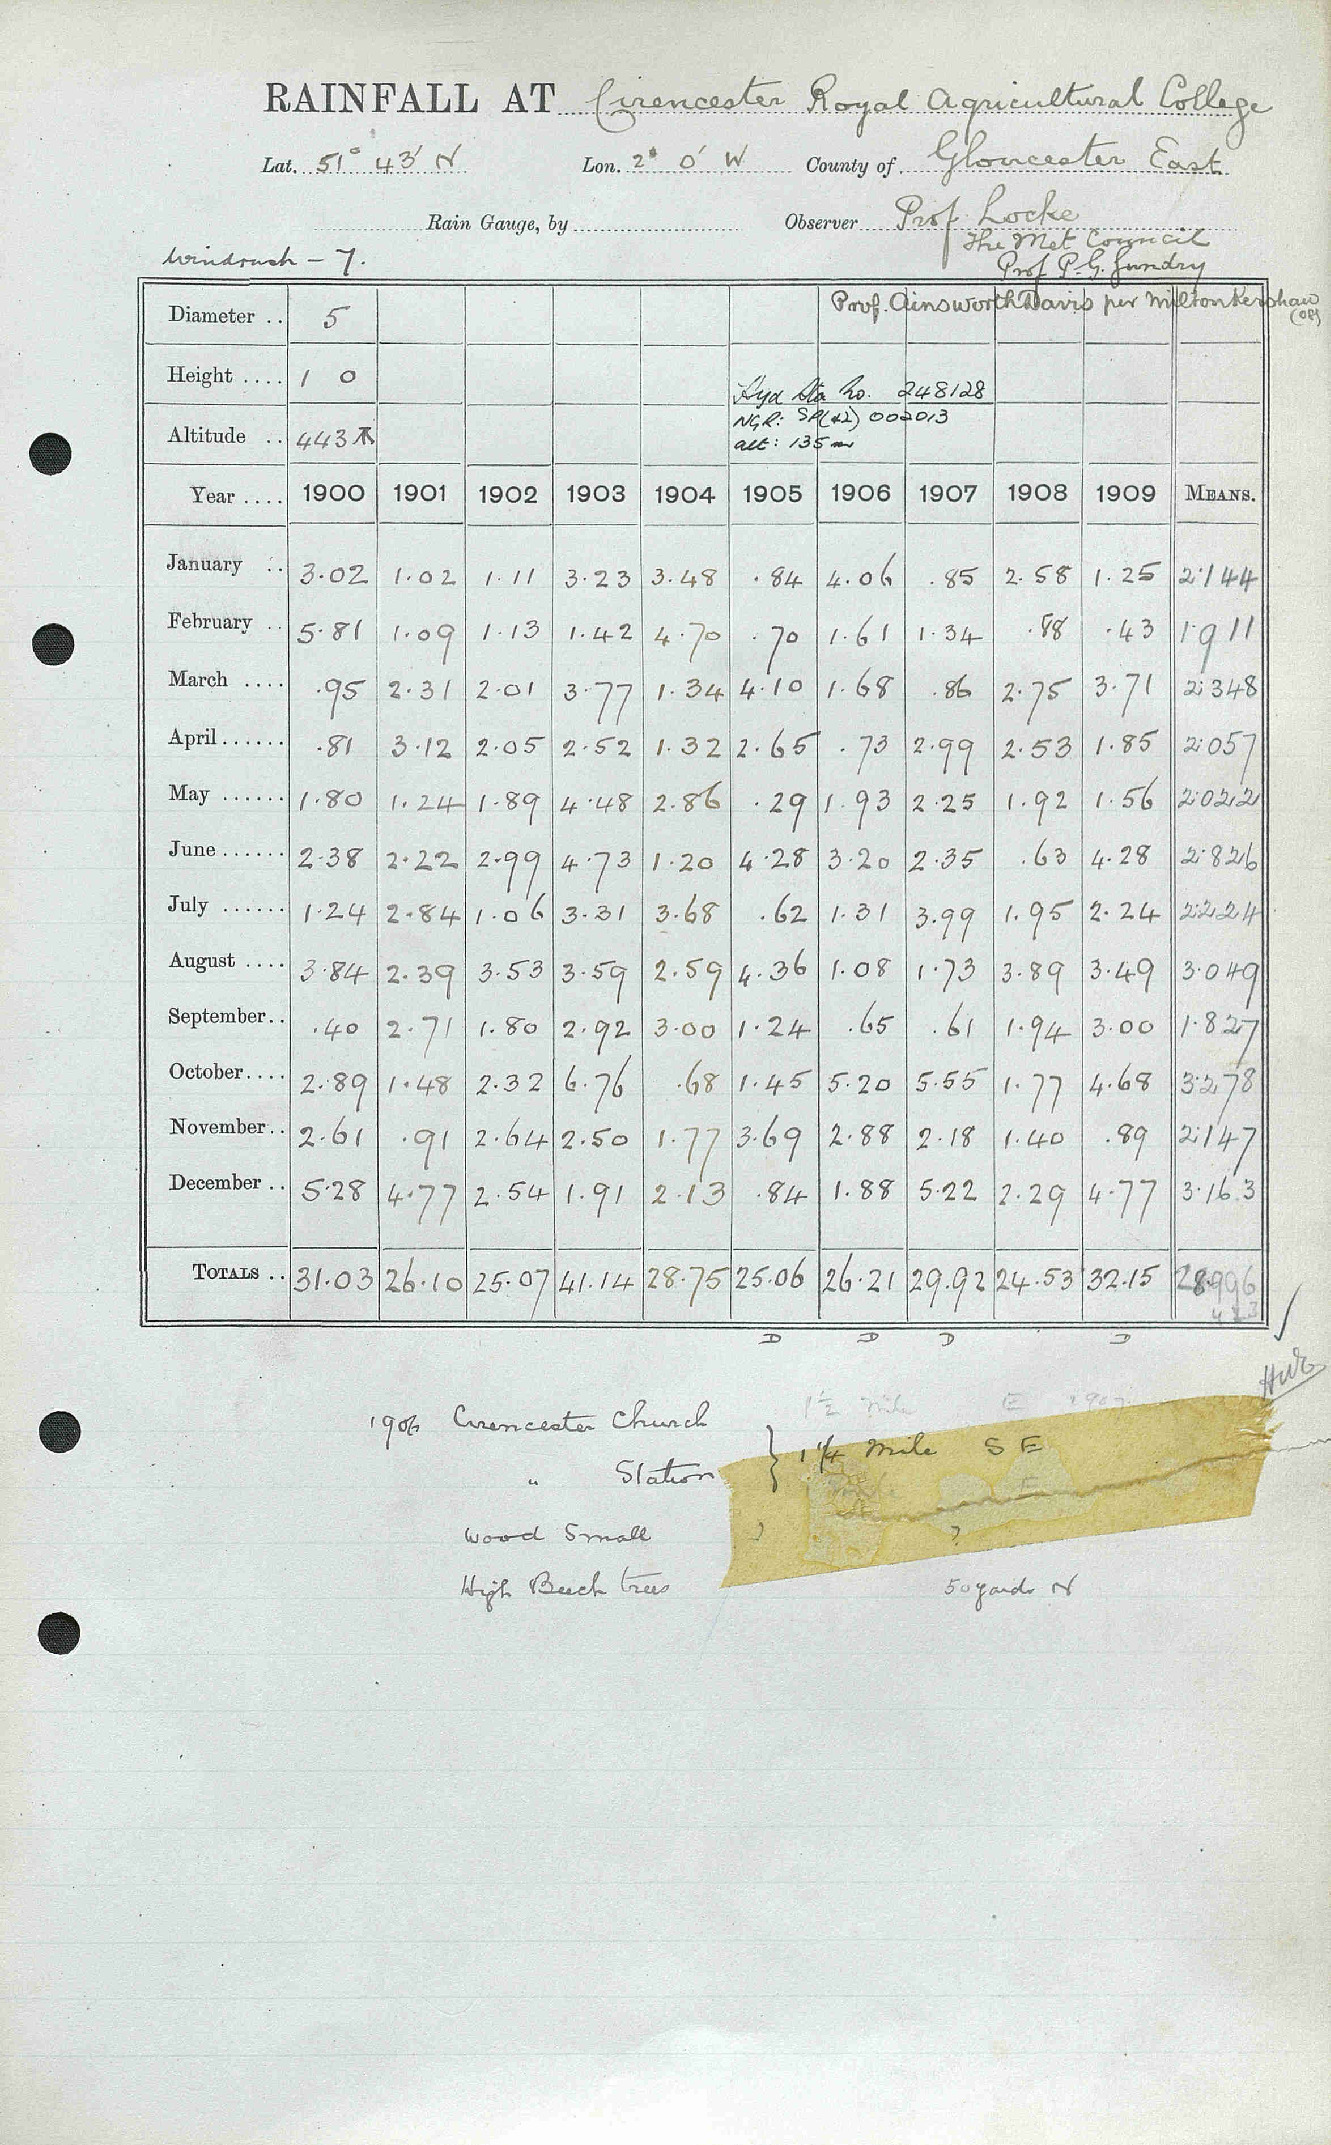 RAINFALL AT Cirencester Royal Agricultural College
Lat. 51° 43' N Lon. 2° 0' W County of Gloucester East
Rain Gauge, by Observer Prof. Locke
The Met Council
Windrush - 7. Prof P. G. Gundry
Diameter .. 5 Prof. Ainsworth Davis per Milton Kershaw (08)
Height .... 1 0
Hyd Sta No. 248128
NGR: SP(42) 002013
Altitude .. 443
alt: 135m
Year .... 1900 1901 1902 1903 1904 1905 1906 1907 1908 1909 MEANS.
January .. 3.02 1.02 1.11 3.23 3.48 .84 4.06 .85 2.58 1.25 2.144
February .. 5.81 1.09 1.13 1.42 4.70 .70 1.61 1.34 .88 .43 1.911
March .... .95 2.31 2.01 3.77 1.34 4.10 1.68 .86 2.75 3.71 2.348
April ...... .81 3.12 2.05 2.52 1.32 2.65 .73 2.99 2.53 1.85 2.057
May ...... 1.80 1.24 1.89 4.48 2.86 .29 1.93 2.25 1.92 1.56 2.022
June ...... 2.38 2.22 2.99 4.73 1.20 4.28 3.20 2.35 .63 4.28 2.826
July ...... 1.24 2.84 1.06 3.31 3.68 .62 1.31 3.99 1.95 2.24 2.224
August .... 3.84 2.39 3.53 3.59 2.59 4.36 1.08 1.73 3.89 3.49 3.049
September .. .40 2.71 1.80 2.92 3.00 1.24 .65 .61 1.94 3.00 1.827
October .... 2.89 1.48 2.32 6.76 .68 1.45 5.20 5.55 1.77 4.68 3.278
November .. 2.61 .91 2.64 2.50 1.77 3.69 2.88 2.18 1.40 .89 2.147
December .. 5.28 4.77 2.54 1.91 2.13 .84 1.88 5.22 2.29 4.77 3.163
TOTALS .. 31.03 26.10 25.07 41.14 28.75 25.06 26.21 29.92 24.53 32.15 28.996
D D D D
1 1/2 Mile E 1907
1906 Cirencester Church
1 1/4 Mile S E
" Station
Wood Small ? ?
High Beech trees 50 yards N